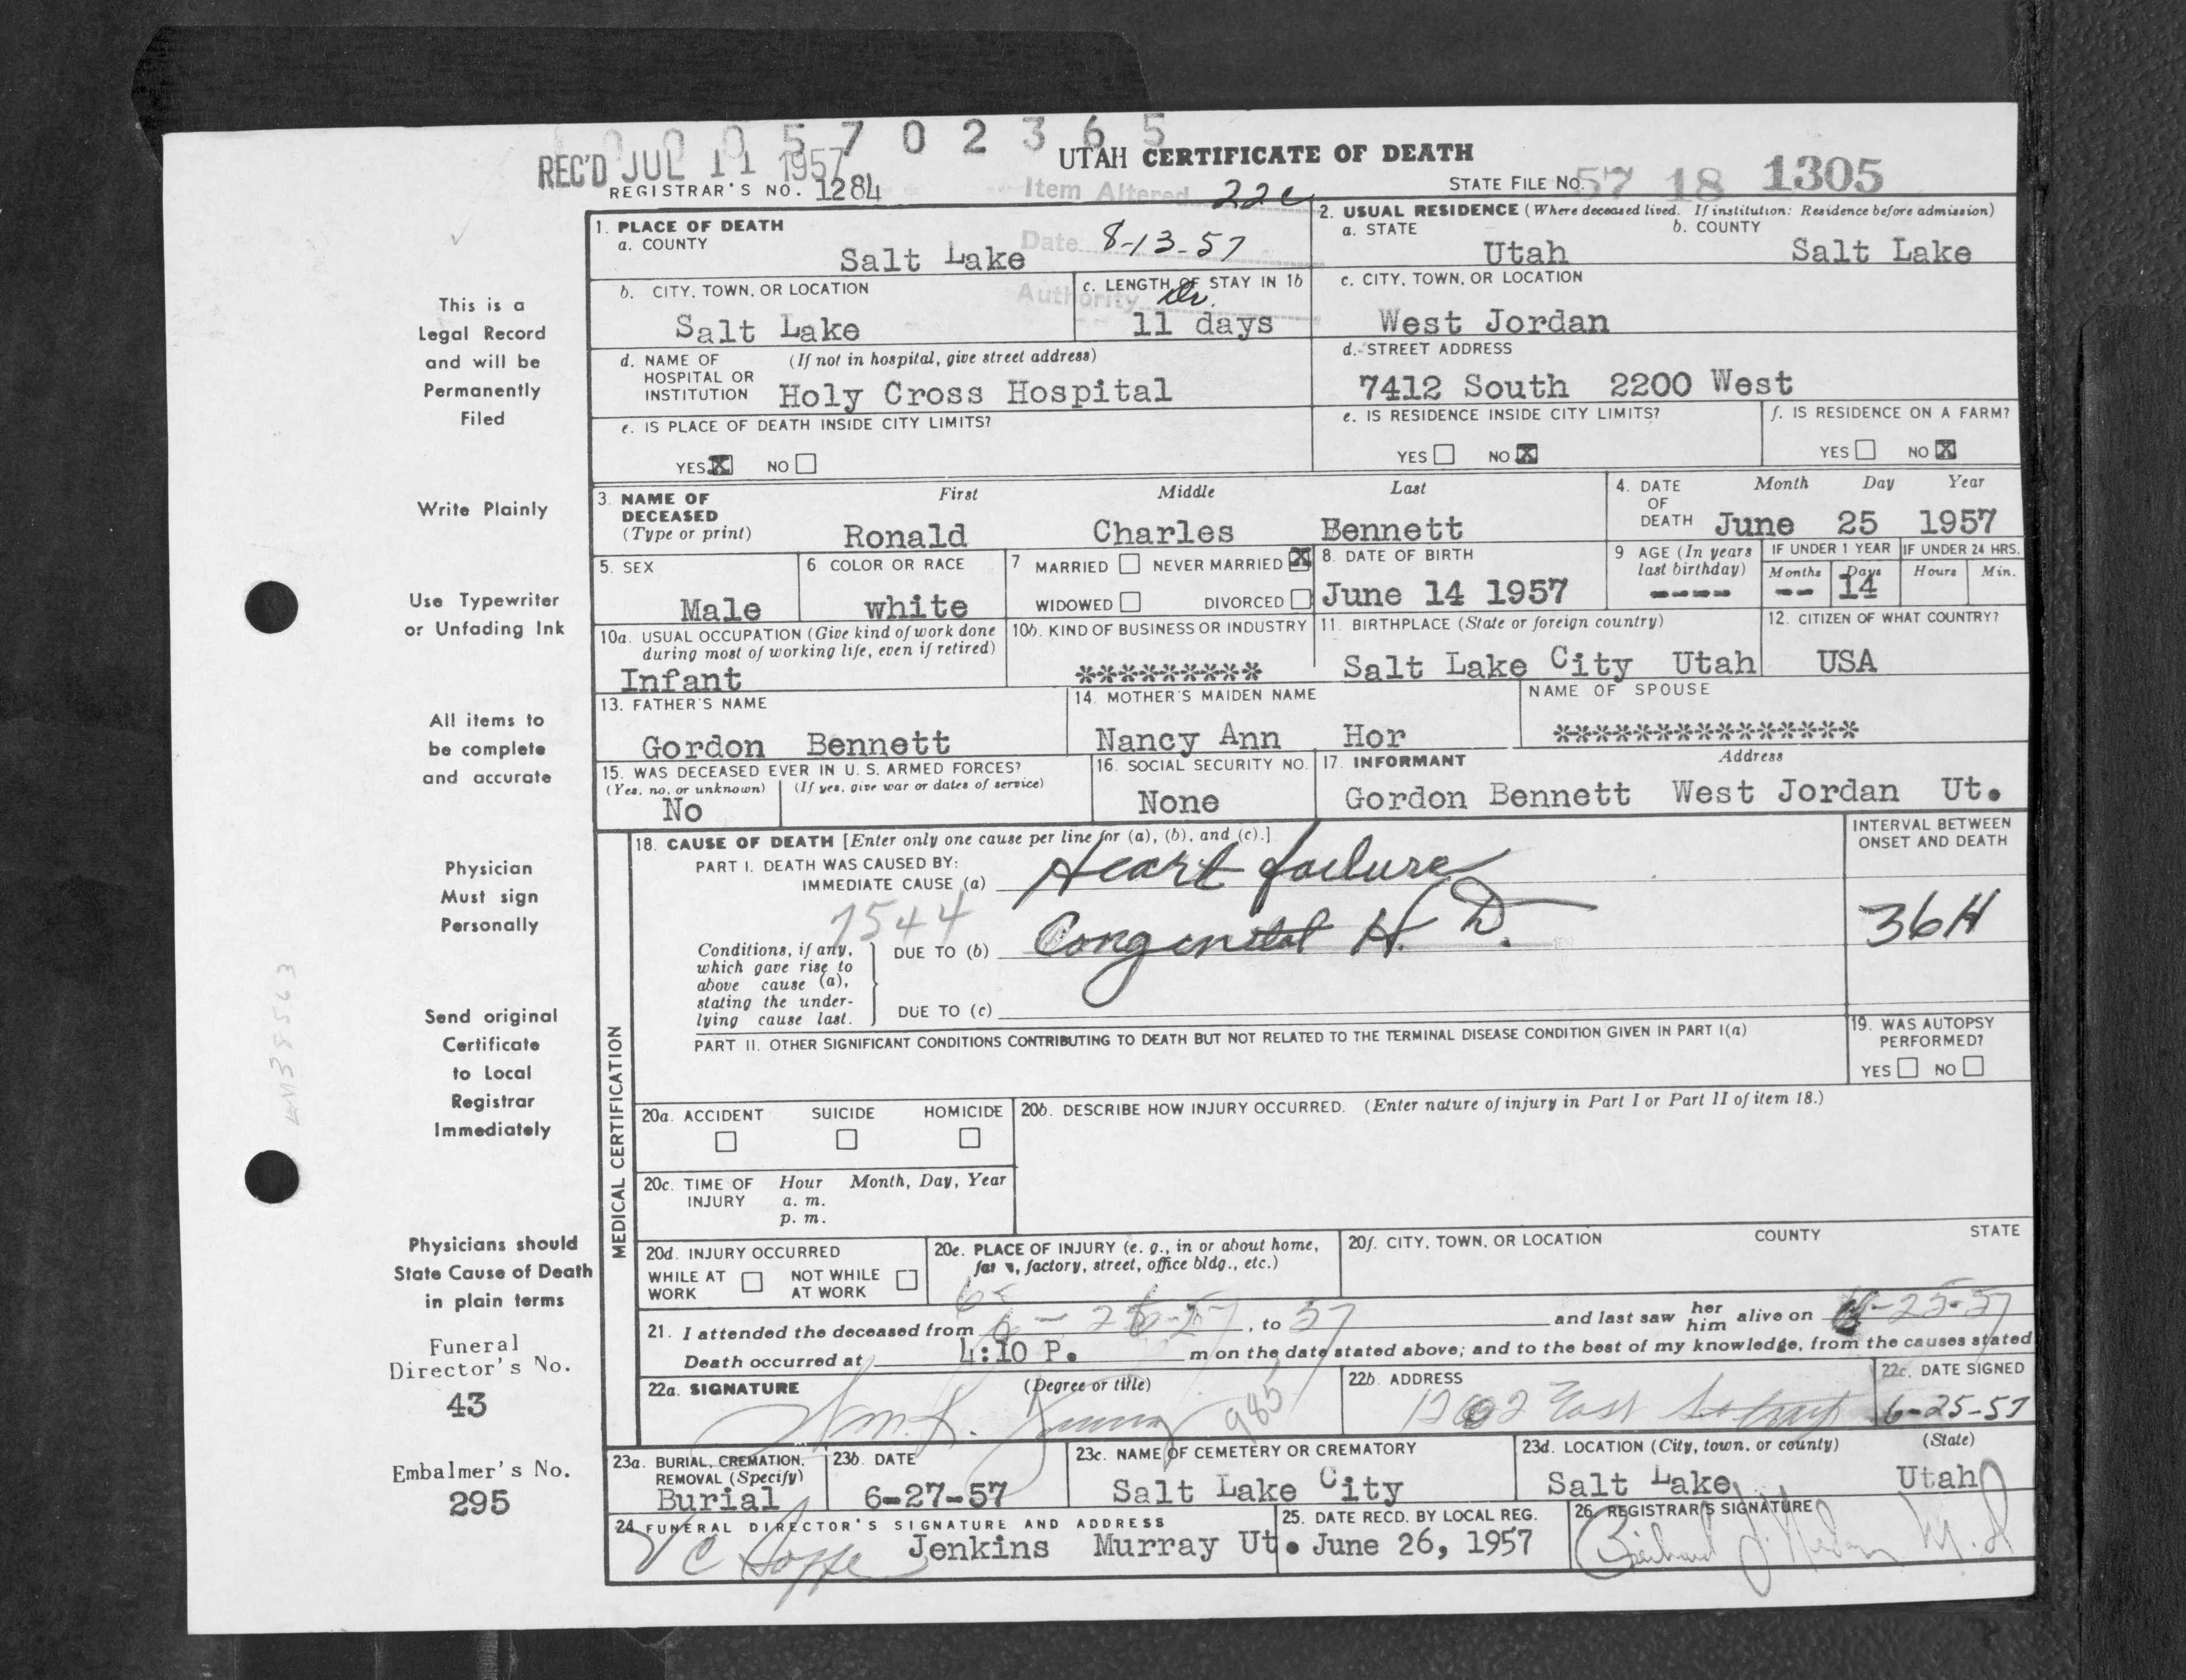 1 0 0 0 5 7 0 2 3 6 5
REC'D JUL 11 1957
UTAH CERTIFICATE OF DEATH
REGISTRAR'S NO. 1284
Item Altered 22c
STATE FILE NO. 57 18 1305
Date 8-13-57
Authority Dr.
1. PLACE OF DEATH
a. COUNTY
Salt Lake
2. USUAL RESIDENCE (Where deceased lived. If institution: Residence before admission)
a. STATE b. COUNTY
Utah Salt Lake
b. CITY, TOWN, OR LOCATION
Salt Lake
c. LENGTH OF STAY IN 1b
11 days
c. CITY, TOWN, OR LOCATION
West Jordan
d. NAME OF (If not in hospital, give street address)
HOSPITAL OR
INSTITUTION Holy Cross Hospital
d. STREET ADDRESS
7412 South 2200 West
e. IS PLACE OF DEATH INSIDE CITY LIMITS?
YES X NO
e. IS RESIDENCE INSIDE CITY LIMITS?
YES NO X
f. IS RESIDENCE ON A FARM?
YES NO X
3. NAME OF
DECEASED
(Type or print)
First Middle Last
Ronald Charles Bennett
4. DATE
OF
DEATH
Month Day Year
June 25 1957
5. SEX
Male
6 COLOR OR RACE
white
7 MARRIED NEVER MARRIED X
WIDOWED DIVORCED
8. DATE OF BIRTH
June 14 1957
9 AGE (In years
last birthday)
----
IF UNDER 1 YEAR
Months Days
-- 14
IF UNDER 24 HRS.
Hours Min.
10a. USUAL OCCUPATION (Give kind of work done
during most of working life, even if retired)
Infant
10b. KIND OF BUSINESS OR INDUSTRY
*********
11. BIRTHPLACE (State or foreign country)
Salt Lake City Utah
12. CITIZEN OF WHAT COUNTRY?
USA
13. FATHER'S NAME
Gordon Bennett
14. MOTHER'S MAIDEN NAME
Nancy Ann Hor
NAME OF SPOUSE
***************
15. WAS DECEASED EVER IN U. S. ARMED FORCES?
(Yes, no, or unknown) (If yes, give war or dates of service)
No
16. SOCIAL SECURITY NO.
None
17. INFORMANT Address
Gordon Bennett West Jordan Ut.
MEDICAL CERTIFICATION
18. CAUSE OF DEATH [Enter only one cause per line for (a), (b), and (c).]
PART I. DEATH WAS CAUSED BY:
IMMEDIATE CAUSE (a) Heart failure
7544
Conditions, if any,
which gave rise to
above cause (a),
stating the under-
lying cause last.
DUE TO (b) Congenital H. D.
DUE TO (c)
INTERVAL BETWEEN
ONSET AND DEATH
36H
PART II. OTHER SIGNIFICANT CONDITIONS CONTRIBUTING TO DEATH BUT NOT RELATED TO THE TERMINAL DISEASE CONDITION GIVEN IN PART I(a)
19. WAS AUTOPSY
PERFORMED?
YES NO
20a. ACCIDENT SUICIDE HOMICIDE
20b. DESCRIBE HOW INJURY OCCURRED. (Enter nature of injury in Part I or Part II of item 18.)
20c. TIME OF
INJURY
Hour Month, Day, Year
a. m.
p. m.
20d. INJURY OCCURRED
WHILE AT
WORK
NOT WHILE
AT WORK
20e. PLACE OF INJURY (e. g., in or about home,
farm, factory, street, office bldg., etc.)
20f. CITY, TOWN, OR LOCATION COUNTY STATE
21. I attended the deceased from , to 57 and last saw her him alive on 6-25-57
Death occurred at 4:10 P. m on the date stated above; and to the best of my knowledge, from the causes stated
22a. SIGNATURE (Degree or title)
985
22b. ADDRESS
East
22c. DATE SIGNED
6-25-57
23a. BURIAL, CREMATION,
REMOVAL (Specify)
Burial
23b. DATE
6-27-57
23c. NAME OF CEMETERY OR CREMATORY
Salt Lake City
23d. LOCATION (City, town, or county) (State)
Salt Lake Utah
24 FUNERAL DIRECTOR'S SIGNATURE AND ADDRESS
Jenkins Murray Ut.
25. DATE RECD. BY LOCAL REG.
June 26, 1957
26. REGISTRAR'S SIGNATURE
M.D
This is a
Legal Record
and will be
Permanently
Filed
Write Plainly
Use Typewriter
or Unfading Ink
All items to
be complete
and accurate
Physician
Must sign
Personally
Send original
Certificate
to Local
Registrar
Immediately
Physicians should
State Cause of Death
in plain terms
Funeral
Director's No.
43
Embalmer's No.
295